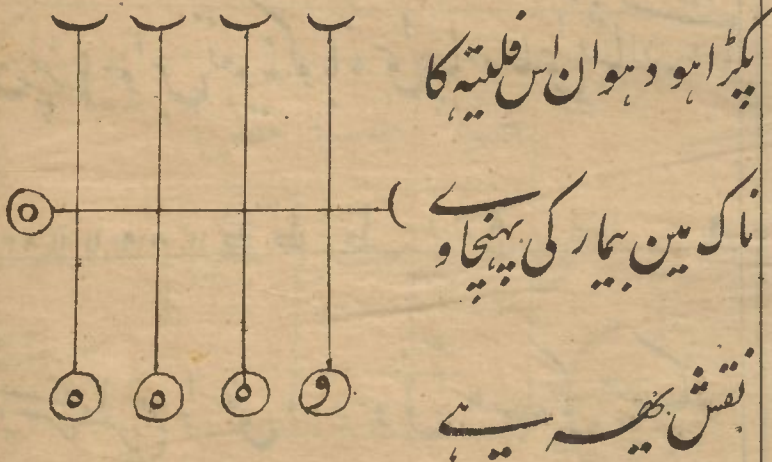 پکڑا ہو دہوان اس فلیتہ کا
ناک مین بیمار کی پہنچاوے
نقش یھہ ہے
ه ه ه و
ه